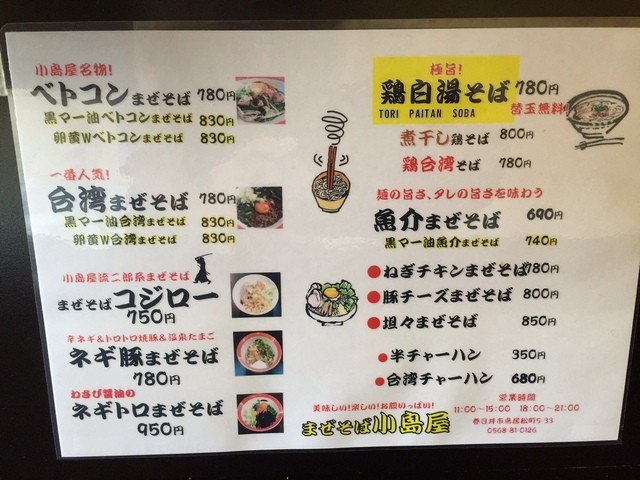 小島屋名物!
ベトコンまぜそば 780円
黒マー油ベトコンまぜそば 830円
卵黄Wベトコンまぜそば 830円
一番人気!
台湾まぜそば 780円
黒マー油台湾まぜそば 830円
卵黄W台湾まぜそば 830円
小島屋流二郎系まぜそば
まぜそばコジロー
750円
辛ネギ&トロトロ焼豚&温泉たまご
ネギ豚まぜそば
780円
わさび醤油の
ネギトロまぜそば
950円
極旨!
鶏白湯そば 780円
TORI PAITAN SOBA
替玉無料!
煮干し鶏そば 800円
鶏台湾そば 780円
麺の旨さ、タレの旨さを味わう
魚介まぜそば 690円
黒マー油魚介まぜそば 740円
●ねぎチキンまぜそば780円
●豚チーズまぜそば 800円
●坦々まぜそば 850円
●半チャーハン 350円
●台湾チャーハン 680円
美味しい!楽しい!お腹いっぱい!
まぜそば小島屋
営業時間
11:00~15:00 18:00~21:00
春日井市鳥居松町5-33
0568-81-0126